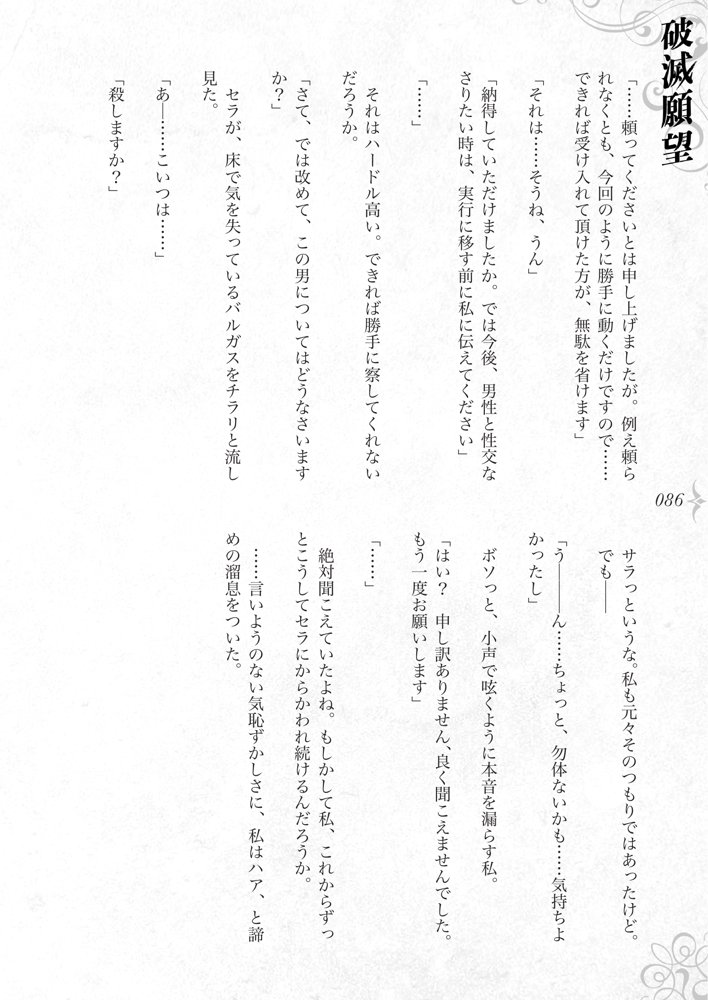 破滅願望
「……頼ってくださいとは申し上げましたが。例え頼ら
れなくとも、今回のように勝手に動くだけですので……
できれば受け入れて頂けた方が、無駄を省けます」
「それは……そうね、うん」
「納得していただけましたか。では今後、男性と性交な
さりたい時は、実行に移す前に私に伝えてください」
「……」
それはハードル高い。できれば勝手に察してくれない
だろうか。
「さて、では改めて、この男についてはどうなさいます
か？」
セラが、床で気を失っているバルガスをチラリと流し
見た。
「あ――……こいつは……」
「殺しますか？」
086
サラっというな。私も元々そのつもりではあったけど。
でも――
「う――ん……ちょっと、勿体ないかも……気持ちよ
かったし」
ボソっと、小声で呟くように本音を漏らす私。
「はい？　申し訳ありません、良く聞こえませんでした。
もう一度お願いします」
「……」
絶対聞こえていたよね。もしかして私、これからずっ
とこうしてセラにからかわれ続けるんだろうか。
……言いようのない気恥ずかしさに、私はハア、と諦
めの溜息をついた。